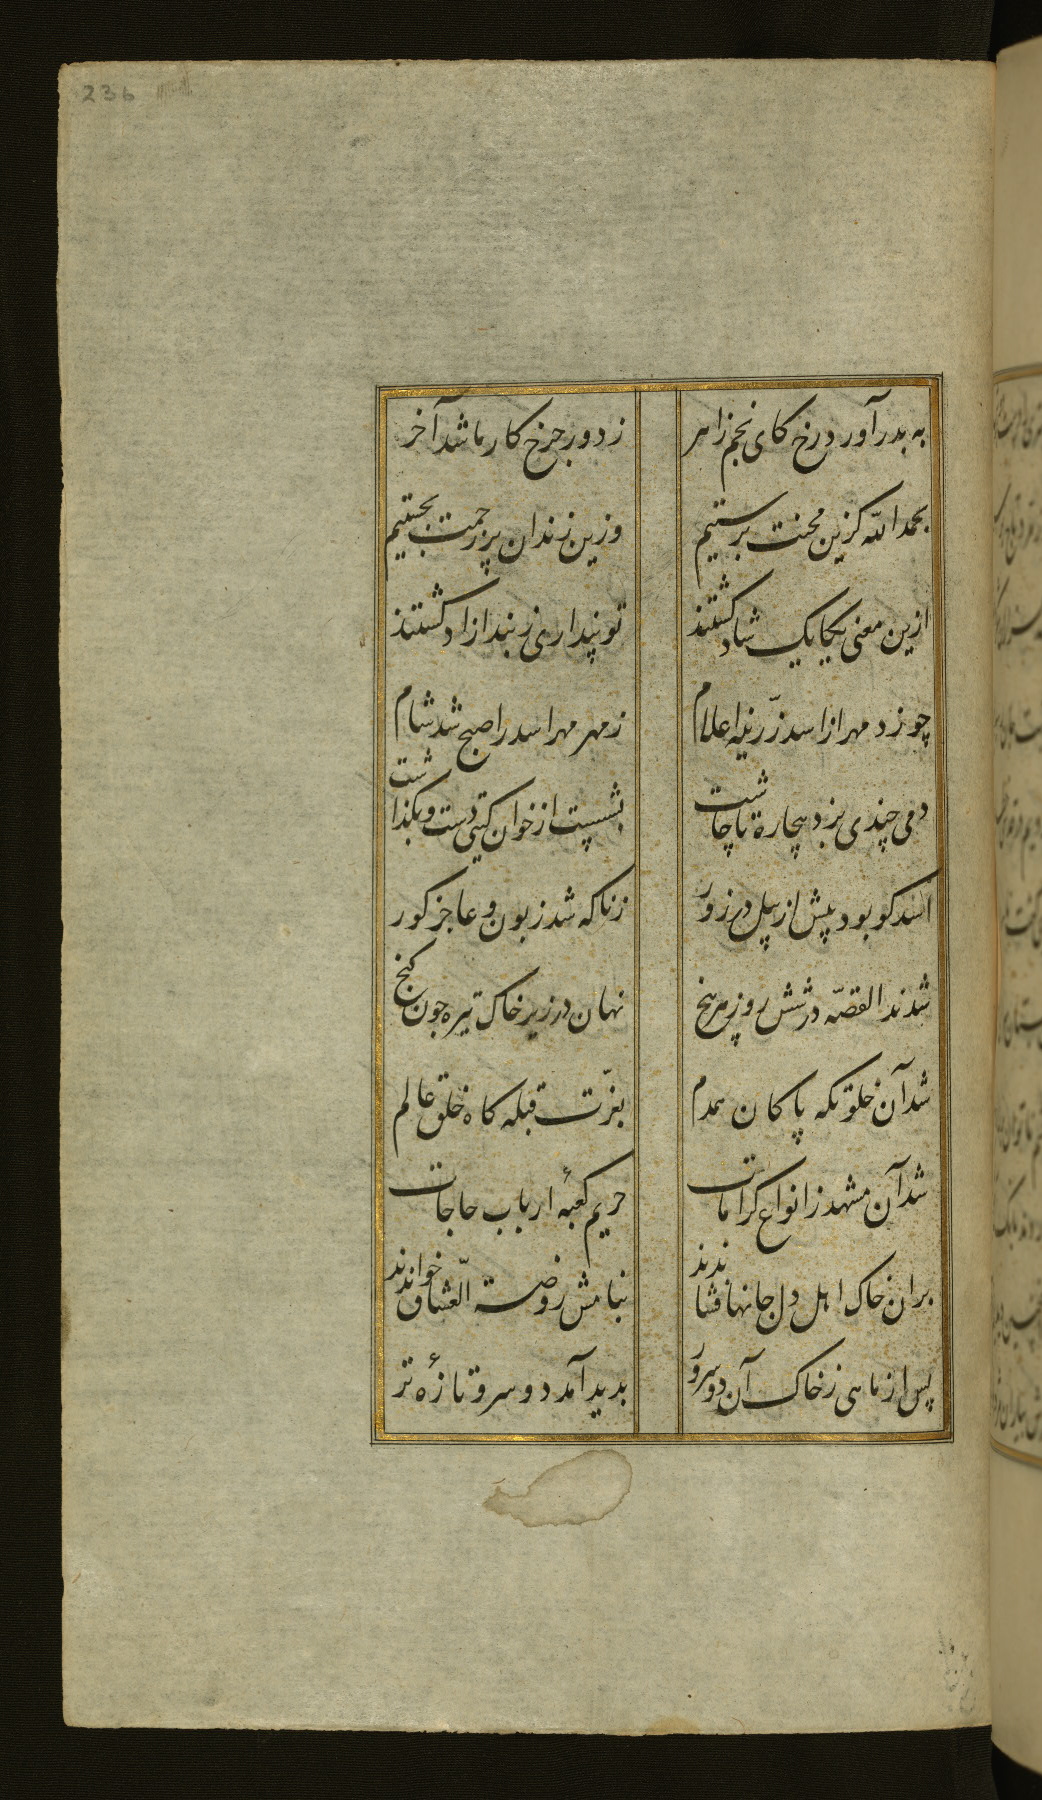 236
به بدر آورد رخ کای نجم زاهر
ز دور چرخ کار ما شد آخر
بحمد الله کزین محنت برستیم
وزین زندان پر زحمت بجستیم
ازین معنی یکایک شاد گشتند
تو پنداری ز بند ازاد گشتند
چو زد مهر از اسد زرینه اعلام
ز مهر مهر اسد را صبح شد شام
دمی چندی بزد بیچاره تا چاشت
بشست از خوان گیتی دست و بگذاشت
اسد کو بود پیش از پیل در زور
زناکه شد زبون و عاجز کور
شدند القصّه در شش روز هر پنج
نهان در زیر خاک تیره چون گنج
شد آن خلوتگه پاکان همدم
بعزّت قبله کاه خلق عالم
شد آن مشهد ز انواع کرامات
حریم کعبهٔ ارباب حاجات
بران خاک اهل دل جانها فشاندند
بنامش روضة العشّاق خواندند
پس از ماهی ز خاک آن دو سرور
بدید آمد دو سرو تازهٔ تر